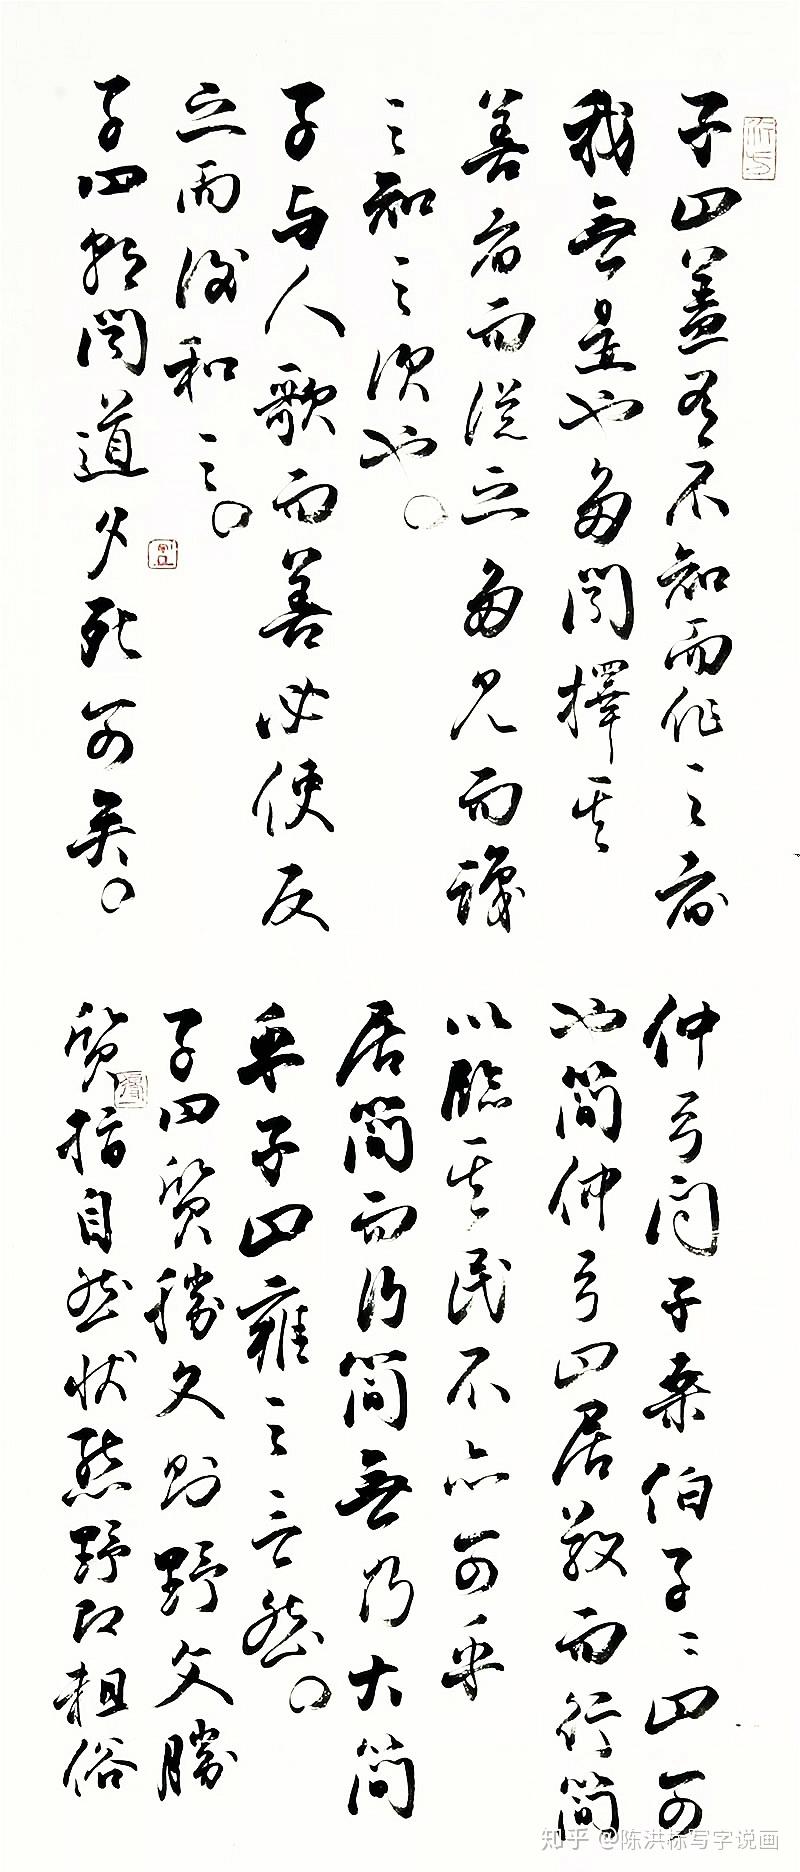 子曰蓋有不知而作之者
我無是也多聞擇其
善者而從之多見而識
之知之次也。
子与人歌而善必使反
之而後和之。
子曰朝聞道夕死可矣。
仲弓问子桑伯子子曰可
也简仲弓曰居敬而行简
以臨其民不亦可乎
居简而行简無乃大简
乎子曰雍之言然。
子曰質勝文則野文勝
質指自然状態野即粗俗
知乎 @陈洪标写字说画